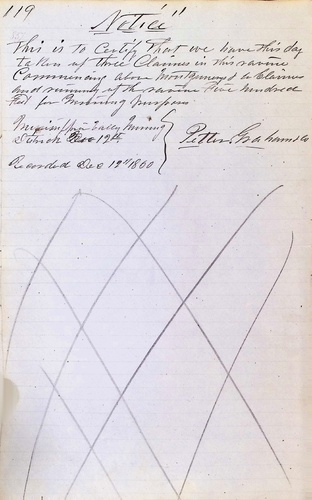 119
"Notice"
This is to Certify That we have this day
taken up three Claims in this ravine
Commencing above Montgomery & Co Claims
and running up the ravine five hundred
feet for mining purposes
Valley Mining
District Dec 12th
Recorded Dec 12th 1860
Graham & Co